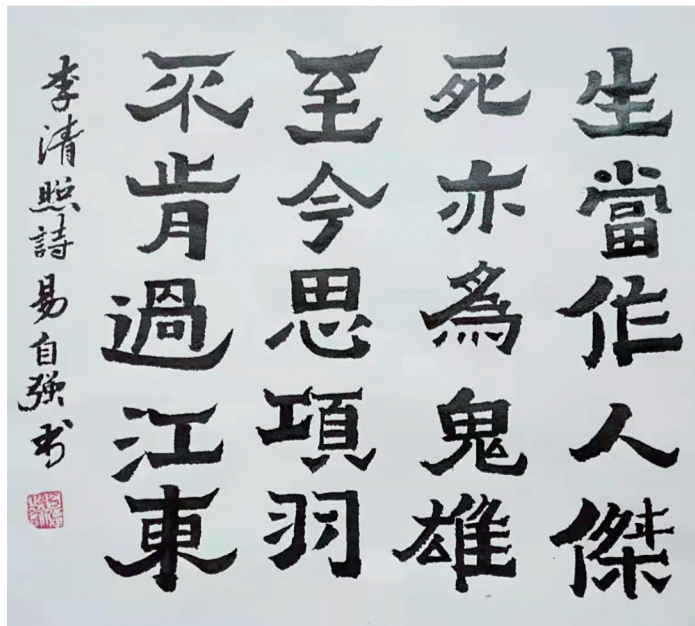 生當作人傑
死亦為鬼雄
至今思項羽
不肯過江東
李清照詩易自強書